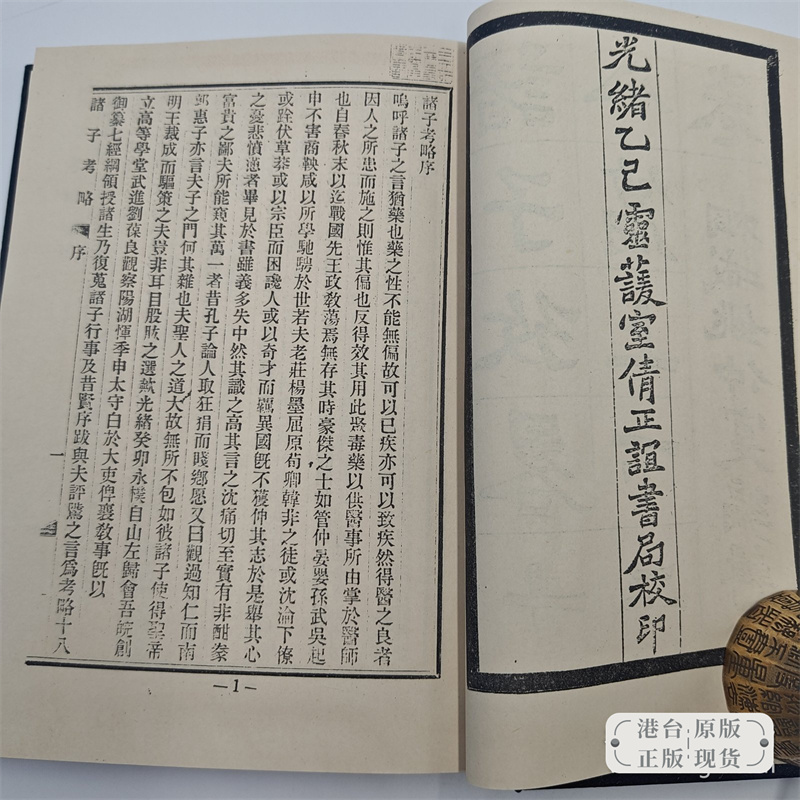 光緒乙巳靈蘐室倩正誼書局校印
諸子考略序
嗚呼諸子之言猶藥也藥之性不能無偏故可以已疾亦可以致疾然得醫之良者
因人之所患而施之則惟其偏也反得效其用此聚毒藥以供醫事所由掌於醫師
也自春秋末以迄戰國先王政敎蕩焉無存其時豪傑之士如管仲晏嬰孫武吳起
申不害商鞅咸以所學馳騁於世若夫老莊楊墨屈原荀卿韓非之徒或沈淪下僚
或跧伏草莽或以宗臣而困讒人或以奇才而羈異國旣不獲伸其志於是舉其心
之憂悲憤懣者畢見於書雖義多失中然其識之高其言之沈痛切至實有非酣豢
富貴之鄙夫所能窺其萬一者昔孔子論人取狂狷而賤鄉愿又曰觀過知仁而南
郭惠子亦言夫子之門何其雜也夫聖人之道大故無所不包如彼諸子使得聖帝
明王裁成而驅策之夫豈非耳目股肱之選歟光緒癸卯永樸自山左歸會吾皖創
立高等學堂武進劉葆良觀察陽湖惲季申太守白於大吏俾襄敎事旣以
御纂七經綱領授諸生乃復蒐諸子行事及昔賢序跋與夫評騭之言爲考略十八
諸子考略 序
一
—1—
港台原版
正版现货